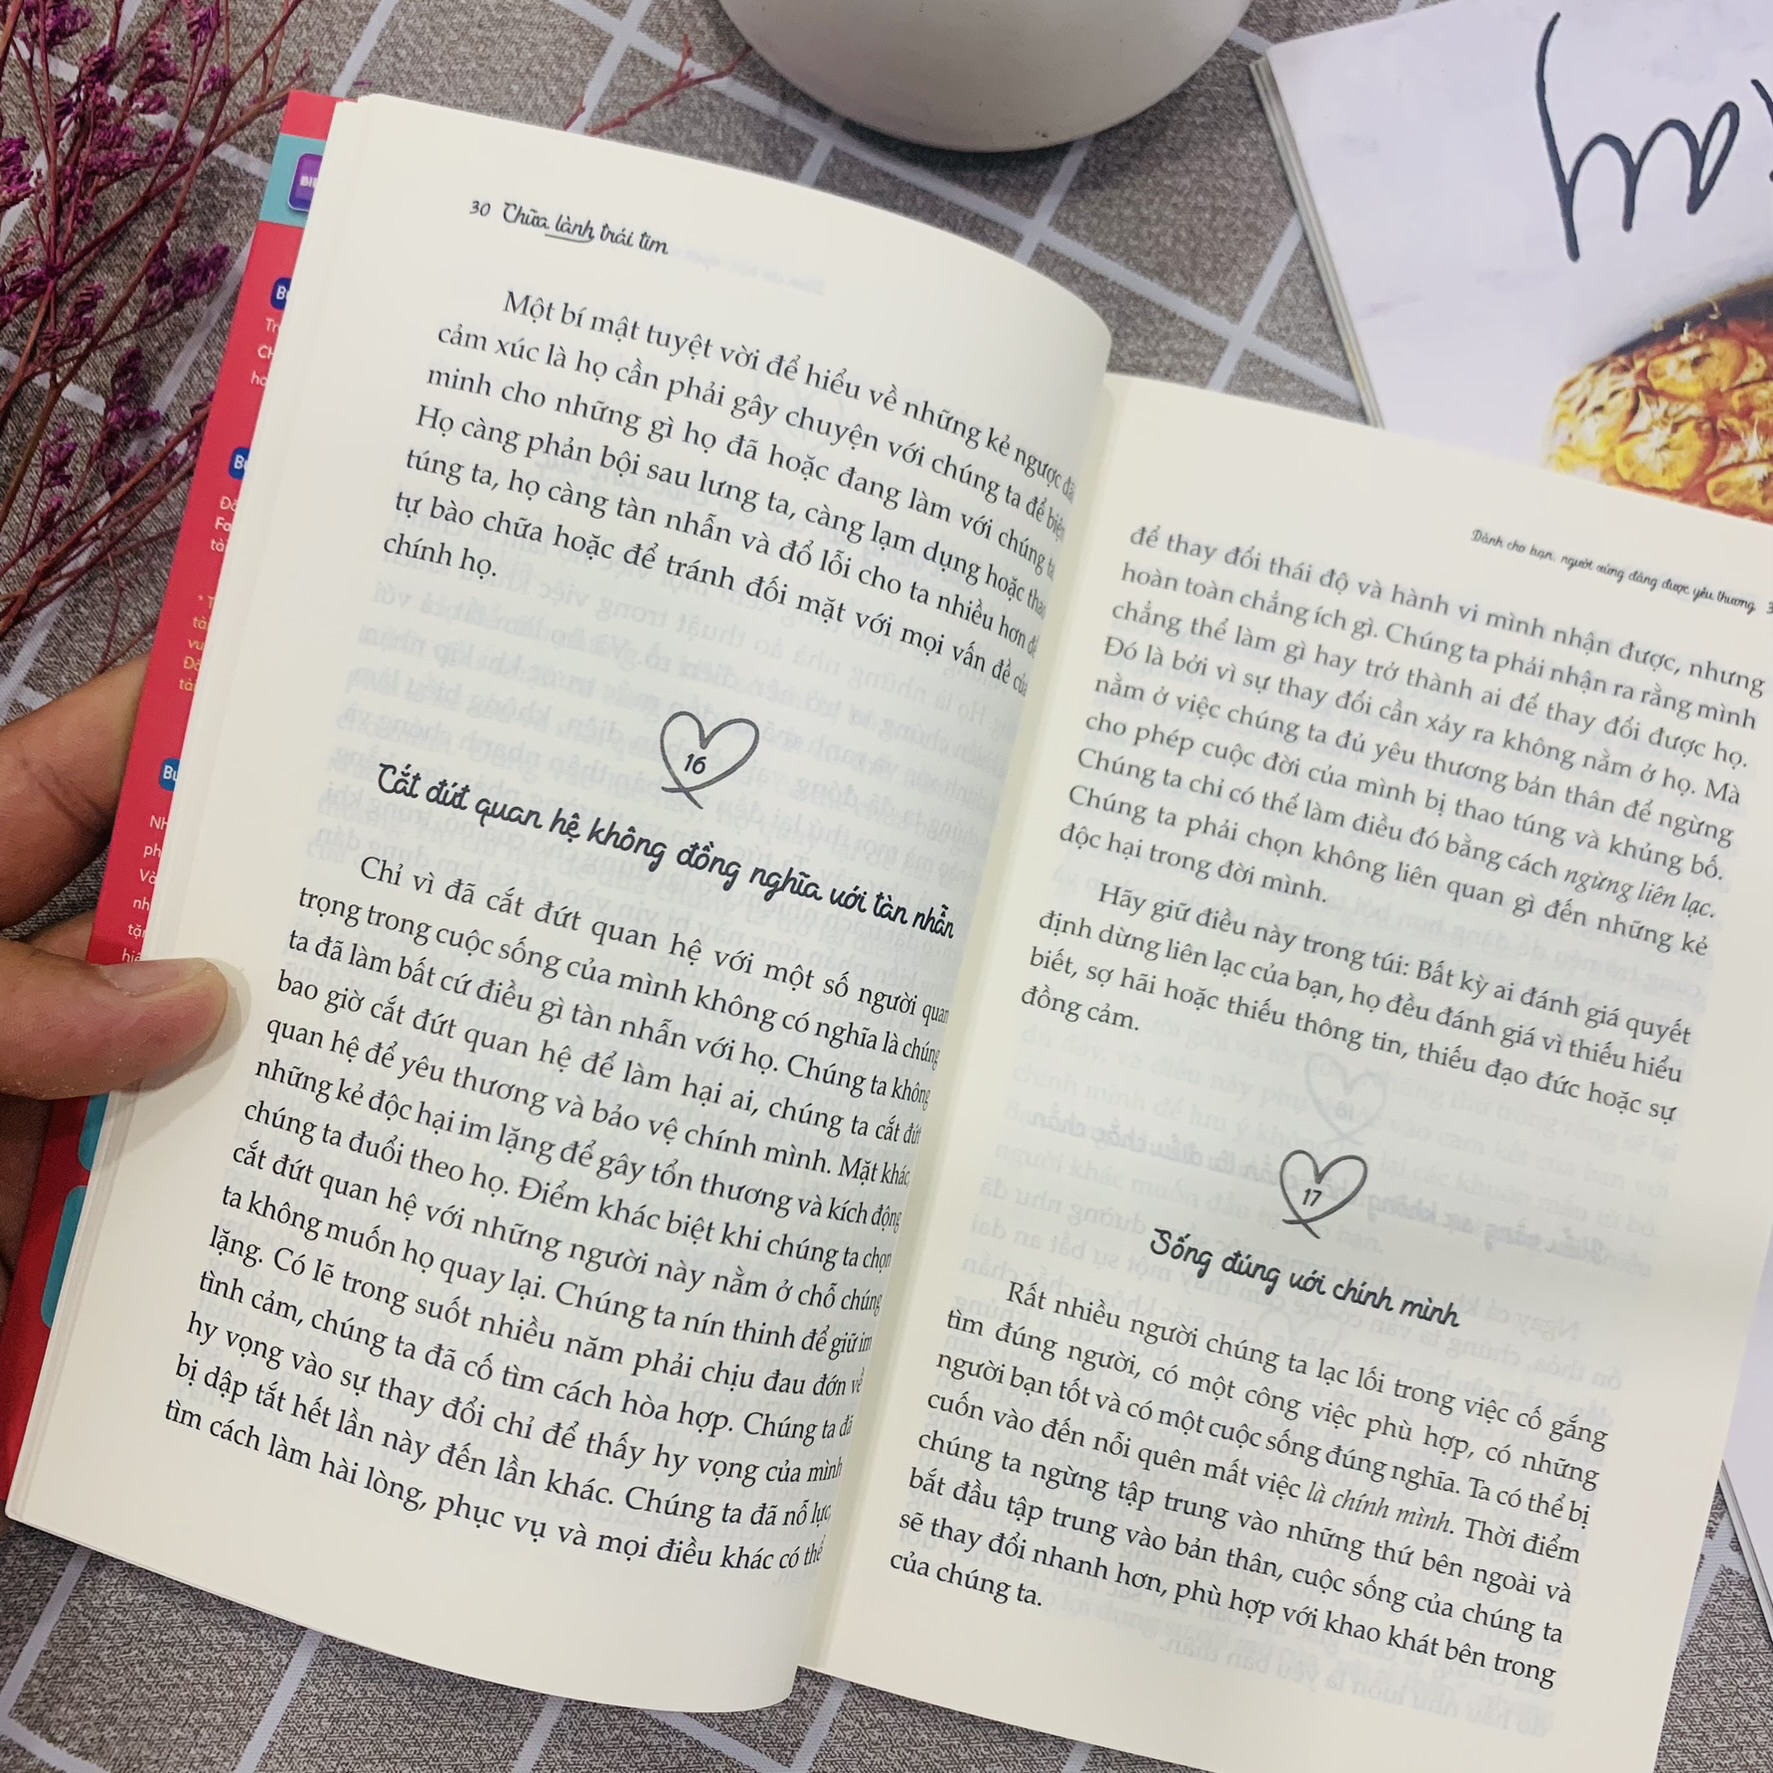 30 Chữa lành trái tim
Một bí mật tuyệt vời để hiểu về những kẻ ngược đãi
cảm xúc là họ cần phải gây chuyện với chúng ta để biện
minh cho những gì họ đã hoặc đang làm với chúng ta.
Họ càng phản bội sau lưng ta, càng lạm dụng hoặc thao
túng ta, họ càng tàn nhẫn và đổ lỗi cho ta nhiều hơn để
tự bào chữa hoặc để tránh đối mặt với mọi vấn đề của
chính họ.
16
Cắt đứt quan hệ không đồng nghĩa với tàn nhẫn
Chỉ vì đã cắt đứt quan hệ với một số người quan
trọng trong cuộc sống của mình không có nghĩa là chúng
ta đã làm bất cứ điều gì tàn nhẫn với họ. Chúng ta không
bao giờ cắt đứt quan hệ để làm hại ai, chúng ta cắt đứt
quan hệ để yêu thương và bảo vệ chính mình. Mặt khác,
những kẻ độc hại im lặng để gây tổn thương và kích động
chúng ta đuổi theo họ. Điểm khác biệt khi chúng ta chọn
cắt đứt quan hệ với những người này nằm ở chỗ chúng
ta không muốn họ quay lại. Chúng ta nín thinh để giữ im
lặng. Có lẽ trong suốt nhiều năm phải chịu đau đớn về
tình cảm, chúng ta đã cố tìm cách hòa hợp. Chúng ta đã
hy vọng vào sự thay đổi chỉ để thấy hy vọng của mình
bị dập tắt hết lần này đến lần khác. Chúng ta đã nỗ lực
tìm cách làm hài lòng, phục vụ và mọi điều khác có thể
Dành cho bạn, người xứng đáng được yêu thương 3
để thay đổi thái độ và hành vi mình nhận được, nhưng
hoàn toàn chẳng ích gì. Chúng ta phải nhận ra rằng mình
chẳng thể làm gì hay trở thành ai để thay đổi được họ.
Đó là bởi vì sự thay đổi cần xảy ra không nằm ở họ. Mà
nằm ở việc chúng ta đủ yêu thương bản thân để ngừng
cho phép cuộc đời của mình bị thao túng và khủng bố.
Chúng ta chỉ có thể làm điều đó bằng cách ngừng liên lạc.
Chúng ta phải chọn không liên quan gì đến những kẻ
độc hại trong đời mình.
Hãy giữ điều này trong túi: Bất kỳ ai đánh giá quyết
định dừng liên lạc của bạn, họ đều đánh giá vì thiếu hiểu
biết, sợ hãi hoặc thiếu thông tin, thiếu đạo đức hoặc sự
đồng cảm.
17
Sống đúng với chính mình
Rất nhiều người chúng ta lạc lối trong việc cố gắng
tìm đúng người, có một công việc phù hợp, có những
người bạn tốt và có một cuộc sống đúng nghĩa. Ta có thể bị
cuốn vào đến nỗi quên mất việc là chính mình. Thời điểm
chúng ta ngừng tập trung vào những thứ bên ngoài và
bắt đầu tập trung vào bản thân, cuộc sống của chúng ta
sẽ thay đổi nhanh hơn, phù hợp với khao khát bên trong
của chúng ta.